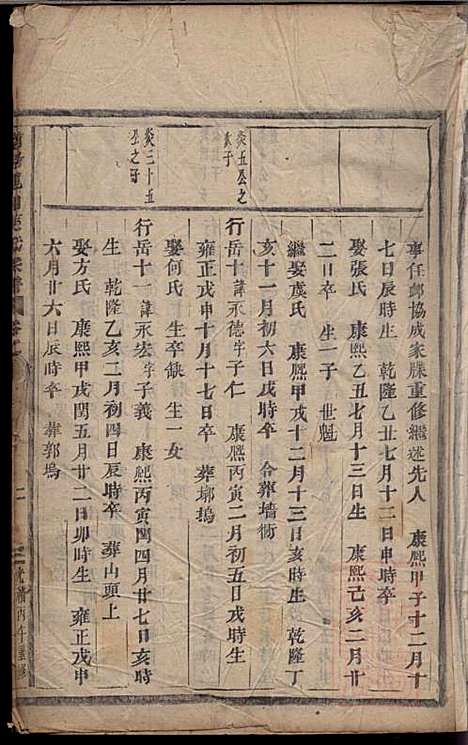 事任郵協成家牒重修繼述先人　康熙甲子十二月十
七日辰時生　乾隆乙丑七月十二日申時卒
娶張氏　康熙乙丑七月十三日生　康熙己亥二月廿
二日卒　生一子　世魁
繼娶虞氏　康熙甲戌十二月十三日亥時生　乾隆丁
亥十一月初六日戌時卒　合葬墙衕
炎五公之
長子
行岳十諱永德字子仁　康熙丙寅二月初五日戌時生
雍正戊申十月十七日卒　葬墎塢
娶何氏　生卒缺　生一女
炎三十五
公之子
行岳十一諱永宏字子義　康熙丙寅閏四月廿七日亥時
生　乾隆乙亥二月初四日辰時卒　葬山頭上
娶方氏　康熙甲戌閏五月廿二日卯時生　雍正戊申
六月廿六日辰時卒　葬郭塢